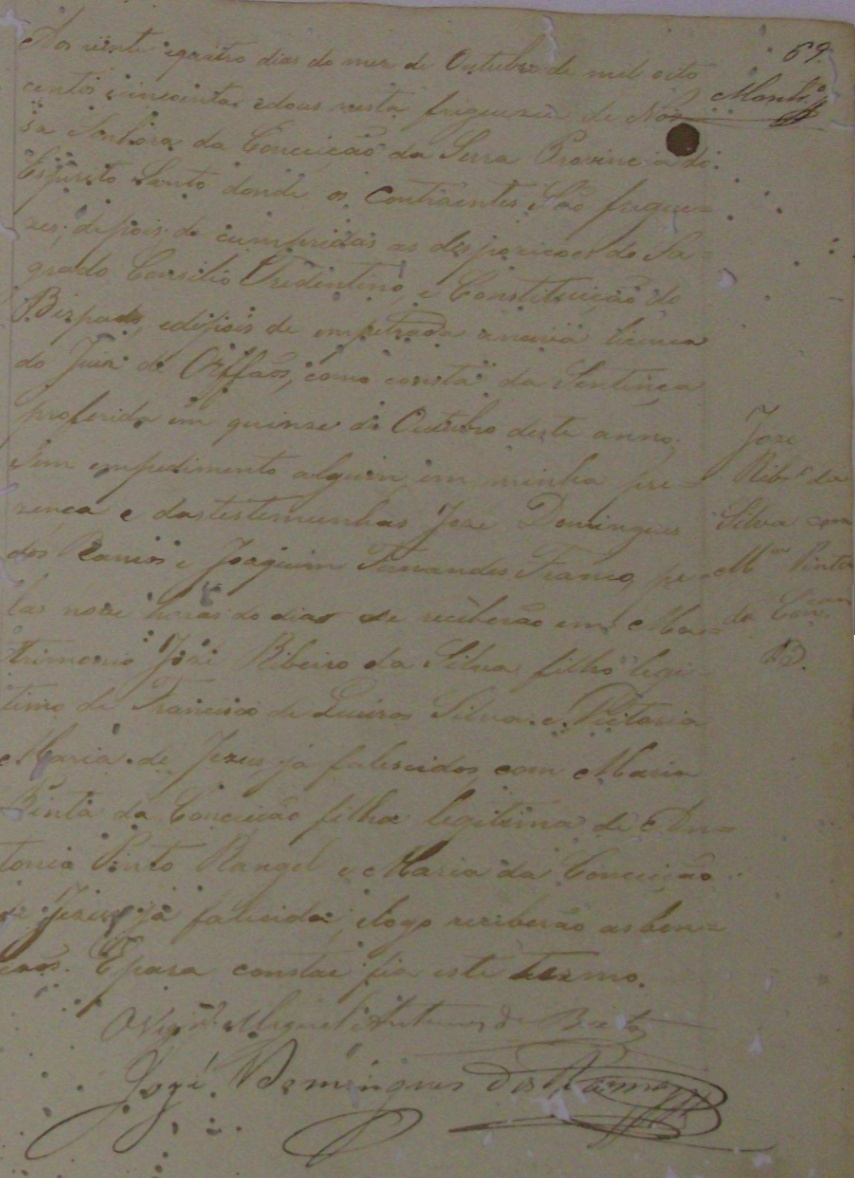 69
Aos vinte equatro dias do mez de Outubro de mil oito
centos cincoenta edous nesta freguezia de Nos
sa Senhora da Conceição da Serra Provincia do
Espirito Santo donde os Contraentes São fregue=
zes, depois de cumpridas as desposicoes do Sa=
grado Concilio Tredentino, e Constituição do
Bispado, edepois de empetrada a licença
do Juiz de Orffãos, como consta da Sentença
proferida em quinze de Outubro deste anno.
Sem empedimento algum em minha pre=
zença e dastestemunhas Joze Domingues
dos Ramos e Joaquim Fernandes Franco, pe
las nove horas do dia se receberão em Ma=
trimonio José Ribeiro da Silva filho legi=
timo de Francisco de Silva e Victoria
Maria de Jezus, já falescidos, com Maria
Pinta da Conceição filha legitima de An=
tonio Pinto Rangel e Maria da Conceição
de Jezus já falecida, elogo receberão asben=
çãos. Epara constar fis este termo.
O Vigr.º Miguel Antunes de Brito
José Domingues dos Ramos
Joze
Ribr.º da
Silva com
M.ª Pinta
da Con.cam